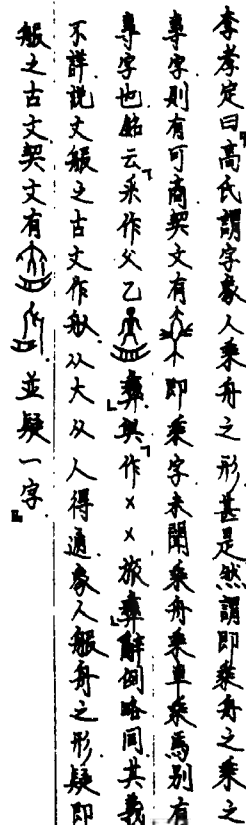 李孝定曰『高氏謂字象人乘舟之形.甚是.然謂即乘舟之
專字則有可商.契文有即乘字.未聞乘舟乘車乘馬別有
專字也.銘云「釆作父乙彝」.與「作××旅彝」辭例略同.其義
不詳.說文般之古文作从大从人得通.象人般舟之形.疑即
般之古文.契文有.並疑一字.』